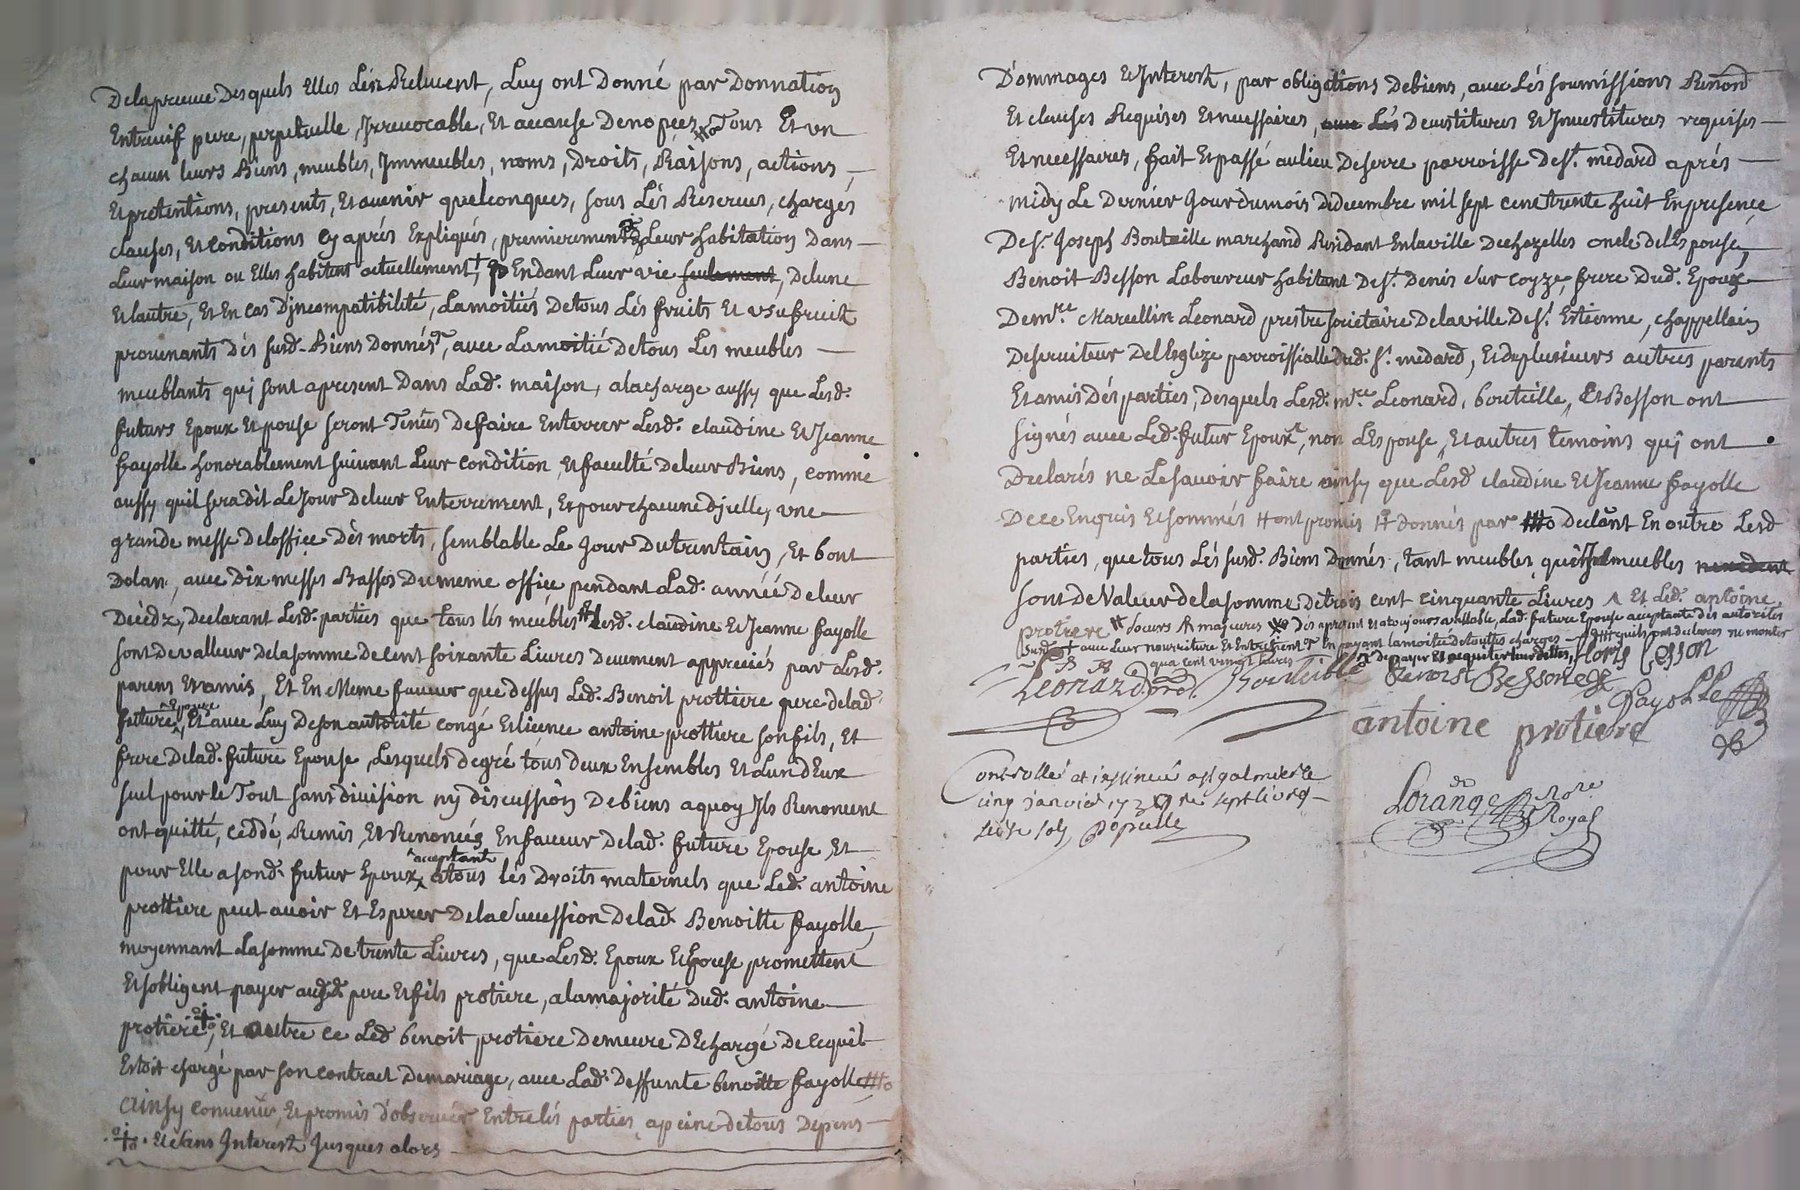 Delapreuve Desquels Elles Lés Relevent, Luy ont Donné par Donnation
Entrevif pure, perpetuelle, Irrevocable, Et acause Denopces Tous Et un
chacun leurs Biens, meubles, Immeubles, noms, Droits, Raisons, actions,
Et pretentions, presents, Et avenir quelconques, sous Lés Reserves, charges
clauses, Et conditions cy aprés Expliqués, premierement Leur habitation Dans
Leur maison ou Elles habitent actuellement, pEndant Leur vie seulement, Delune
Et lautre, Et En cas Djncompatibilité, Lamoitiés Detous Lés fruits Et usufruit
provenants Dés susd. Biens Donnés, avec Lamoitié Detous Les meubles
meublants qui sont apresent Dans Lad. maison, alacharge aussy que Lesd.
futurs Epoux Epouse seront Tenus Defaire Enterrer Lesd. claudine Et Jeanne
fayolle honorablement suivant Leur condition, Et faculté Deleur Biens, comme
aussy quil sera dit Le Jour Deleur Enterrement, Et pour chacune Djcelle, une
grande messe Deloffice Dés morts, semblable Le Jour Dutrentain, Et bout
Dolan, avec Dix messes Basses Dumeme office pendant Lad. année Deleur
Décédz, Declarant Lesd. parties que tous lés meubles Desd. claudine Et Jeanne fayolle
sont Devalleur Delasomme Decent soixante Livres Deuement appreciés par Lesd.
parens Et amis, Et En Meme faveur que dessus Led. Benoit prottiere pere Delad.
future Epouse, Et avec Luy Deson autorité congé Et licence antoine prottiere son fils, Et
frere Delad. future Epouse, Lesquels Degré tous deux Ensembles Et Lun dEux
seul pour le Tout sans division ny discussion Debiens aquoy Ils Renoncent
ont quitté, ceddé, Remis, Et Renoncés En faveur Delad. future Epouse, Et
pour Elle a sond. futur Epoux acceptant atous lés Droits maternels que Led. antoine
prottiere peut avoir Et Esperer Dela succession Delad. Benoitte fayolle,
moyennant Lasomme Detrente Livres, que Lesd. Epoux Epouse promettent
Et sobligent payer ausd. pere Et fils protiere, alamajorité Dud. antoine
protiere, Et outre ce Led. benoit protiere Demeure DEchargé De cequil
Estoit chargé par son contract Demariage, avec Lad. Deffunte benoitte fayolle
ainsy convenu, Et promis d'observer Entre lés parties, apeine detous Depens
Et sans Interest Jusques alors
Dommages Et Interest, par obligations Debiens, avec Lés soumissions Renond
Et clauses Requises Et necessaires, avec Lés Devestitures Et Investitures requises
Et necessaires, fait Et passé aulieu Deserre parroisse De St. medard aprés
midy Le Dernier Jour dumois Ddecembre mil sept cent trente huit En presence
De Sr. Joseph Bouteille marchand Residant Enlaville Dechazelles oncle delEspouse,
Benoit Besson Laboureur habitant De St. Denis sur coyze, frere Dud. Epoux
De mre. Marcellin Leonard prestre societaire Delaville De St. Estienne, chappellain
Deserviteur Del Eglize parroissialle Dud. St. medard, Et deplusieurs autres parents
Et amis Dés parties, Desquels Lesd. mre. Leonard, bouteille, Et Besson ont
signés avec Led. futur Epoux, non LEspouse, Et autres temoins qui ont
Declarés ne Le savoir faire ainsy que Lesd. claudine Et Jeanne fayolle
Dece Enquis Et sommés Declant En outre Lesd
parties, que tous Lés susd. Biens Donnés, tant meubles, que Immeubles
sont De Valeur delasomme Detrois cent cinquante Livres Et Led. antoine
protiere soeurs majeures Dés apresent Et atoujours Lad. future Epouse acceptante dés autorités
susd. avec Leur nourriture Et Entretient En payant lamoitié detoutes charges quils ont declarés ne monter
qua cent vingt livres De payer Et acquiter leur dettes, Loris Besson
Leonard pre. Bouteille Benoist Besson
fayolle
antoine protiere
Controllé et insinué a St galmier le
cinq janvier 1739 Re sept livres
seize sols Popuelle
Lorange Nore
Royal